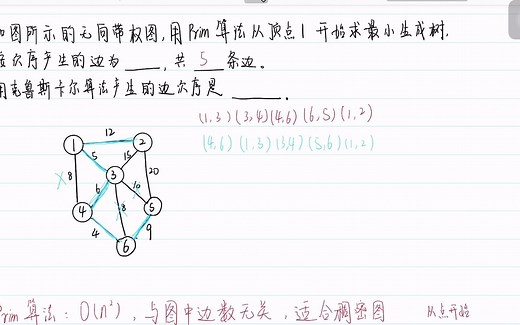 如图所示的无向带权图,用Prim 算法从顶点1 开始求最小生成树.
按次序产生的边为 ____, 共 5 条边。
用克鲁斯卡尔算法产生的边次序是 ____.
(1,3) (3,4) (4,6) (6,5) (1,2)
(4,6) (1,3) (3,4) (5,6) (1,2)
12
1
2
5
15
8
3
20
6
10
4
8
5
4
9
6
Prim 算法: O(n²), 与图中边数无关, 适合稠密图
从点开始